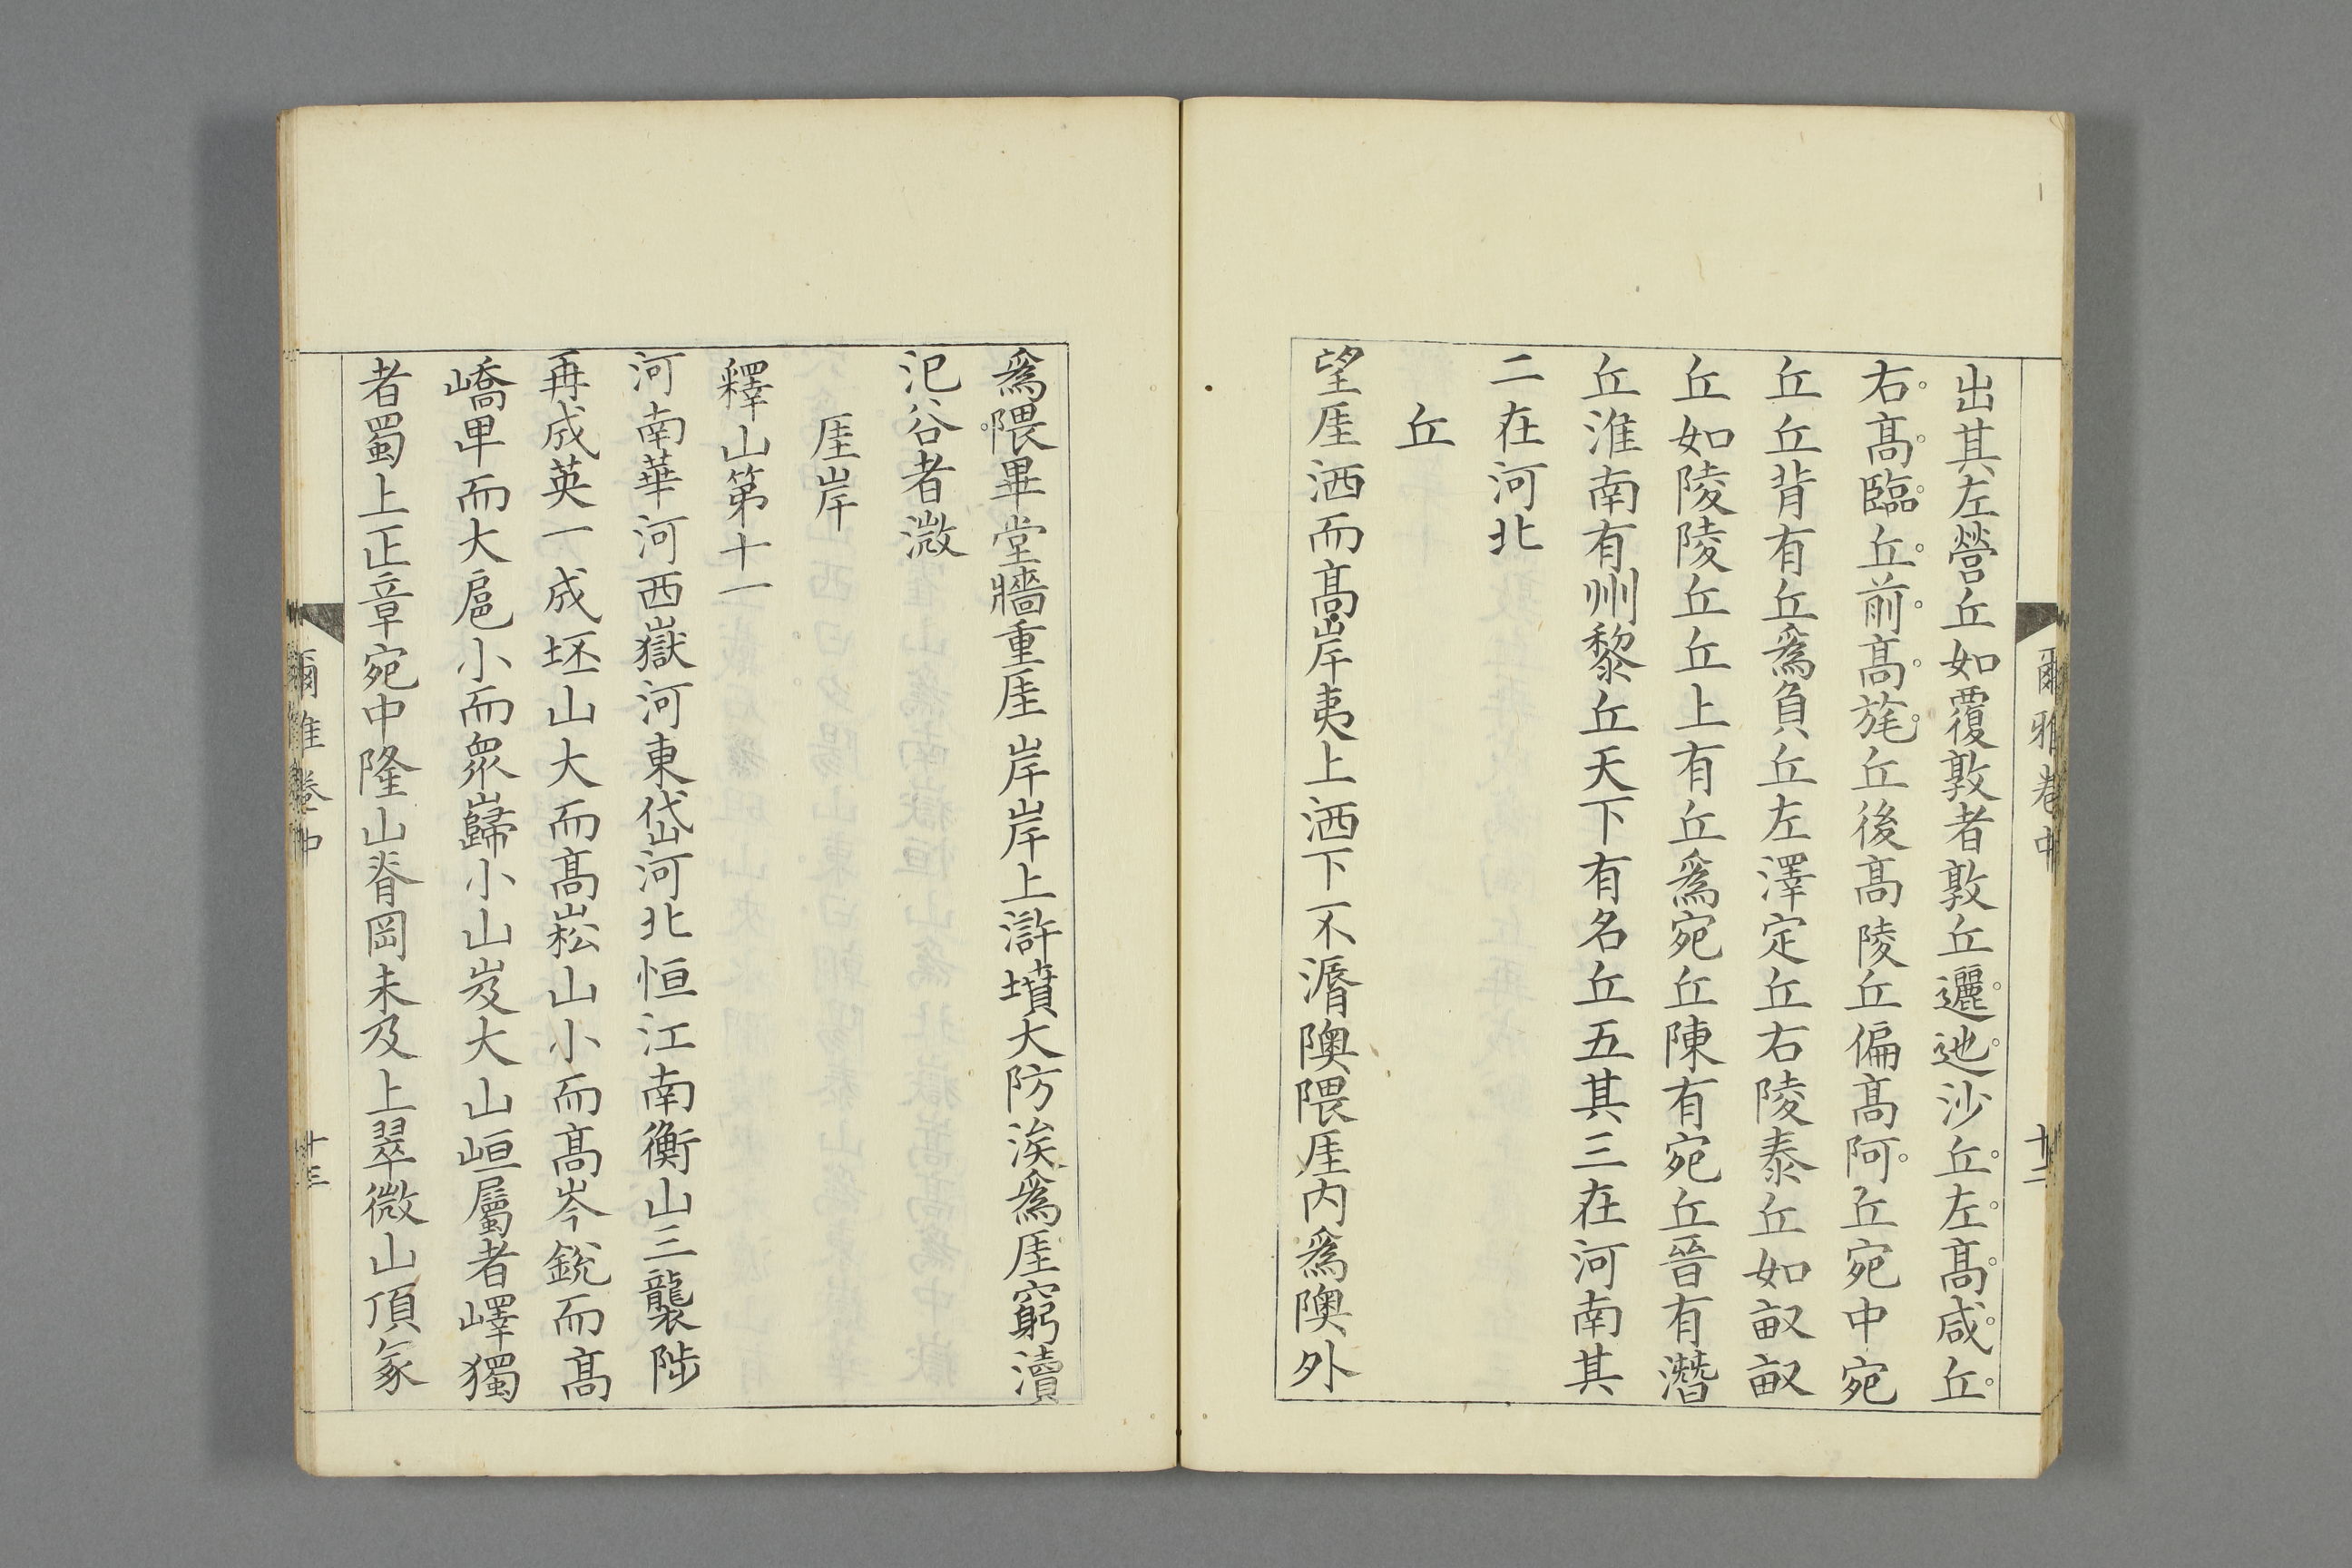 爾雅卷中
十二
出其左營丘如覆敦者敦丘邐迆沙丘左高咸丘
右高臨丘前高旄丘後高陵丘偏高阿丘宛中宛
丘丘背有丘爲負丘左澤定丘右陵泰丘如畝畝
丘如陵陵丘丘上有丘爲宛丘陳有宛丘晉有潛
丘淮南有州黎丘天下有名丘五其三在河南其
二在河北
丘
望厓洒而高岸夷上洒下不漘隩隈厓内爲隩外
爲隈畢堂牆重厓岸岸上滸墳大防涘爲厓窮瀆
汜谷者溦
厓岸
釋山第十一
河南華河西嶽河東岱河北恒江南衡山三襲陟
再成英一成坯山大而高崧山小而高岑銳而高
嶠卑而大扈小而眾巋小山岌大山峘屬者嶧獨
者蜀上正章宛中隆山脊岡未及上翠微山頂冢
爾雅卷中
十三